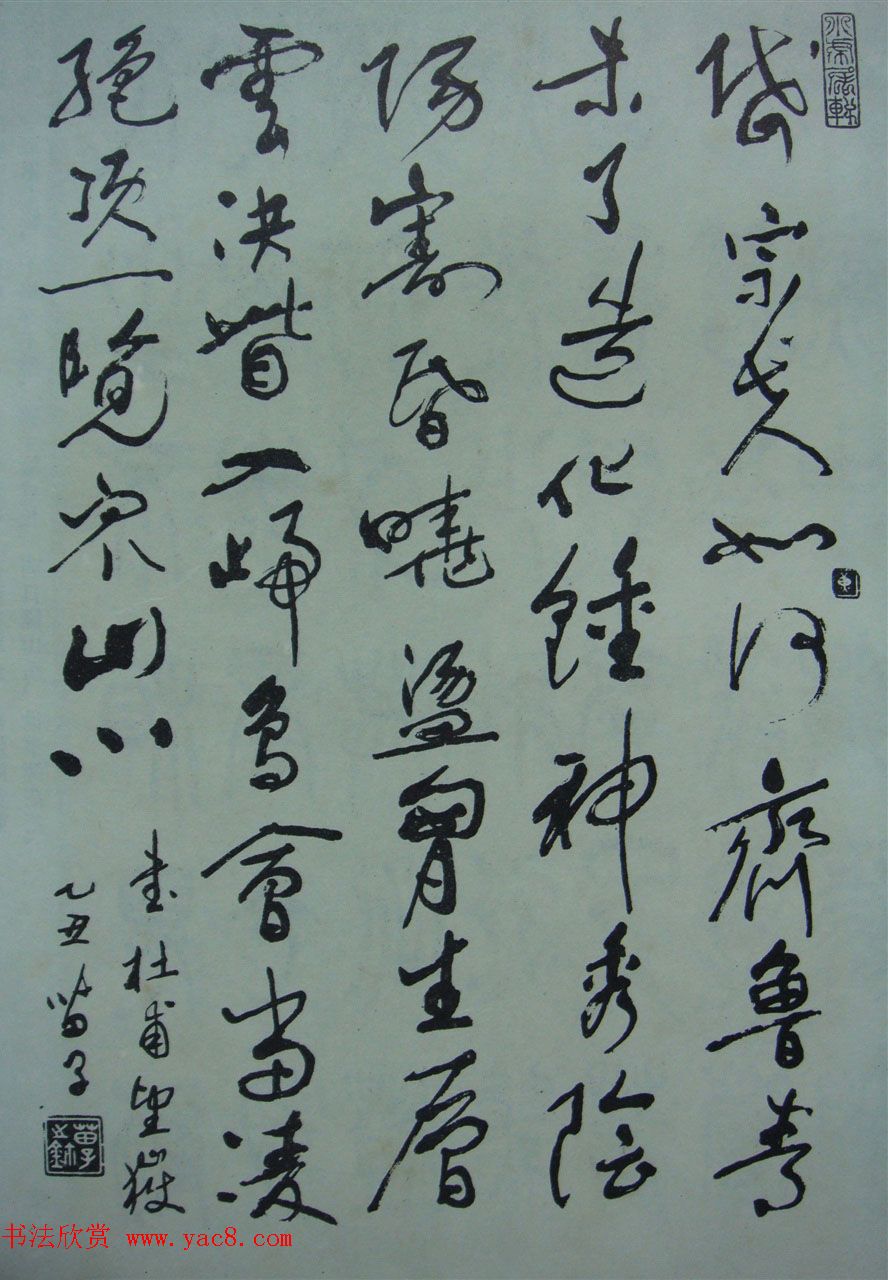 岱宗夫如何齊魯青
未了造化鍾神秀陰
陽割昏曉盪胷生層
雲決眥入歸鳥會當凌
絕頂一覽眾山小
书杜甫望嶽
乙丑苗子
书法欣赏 www.yac8.com